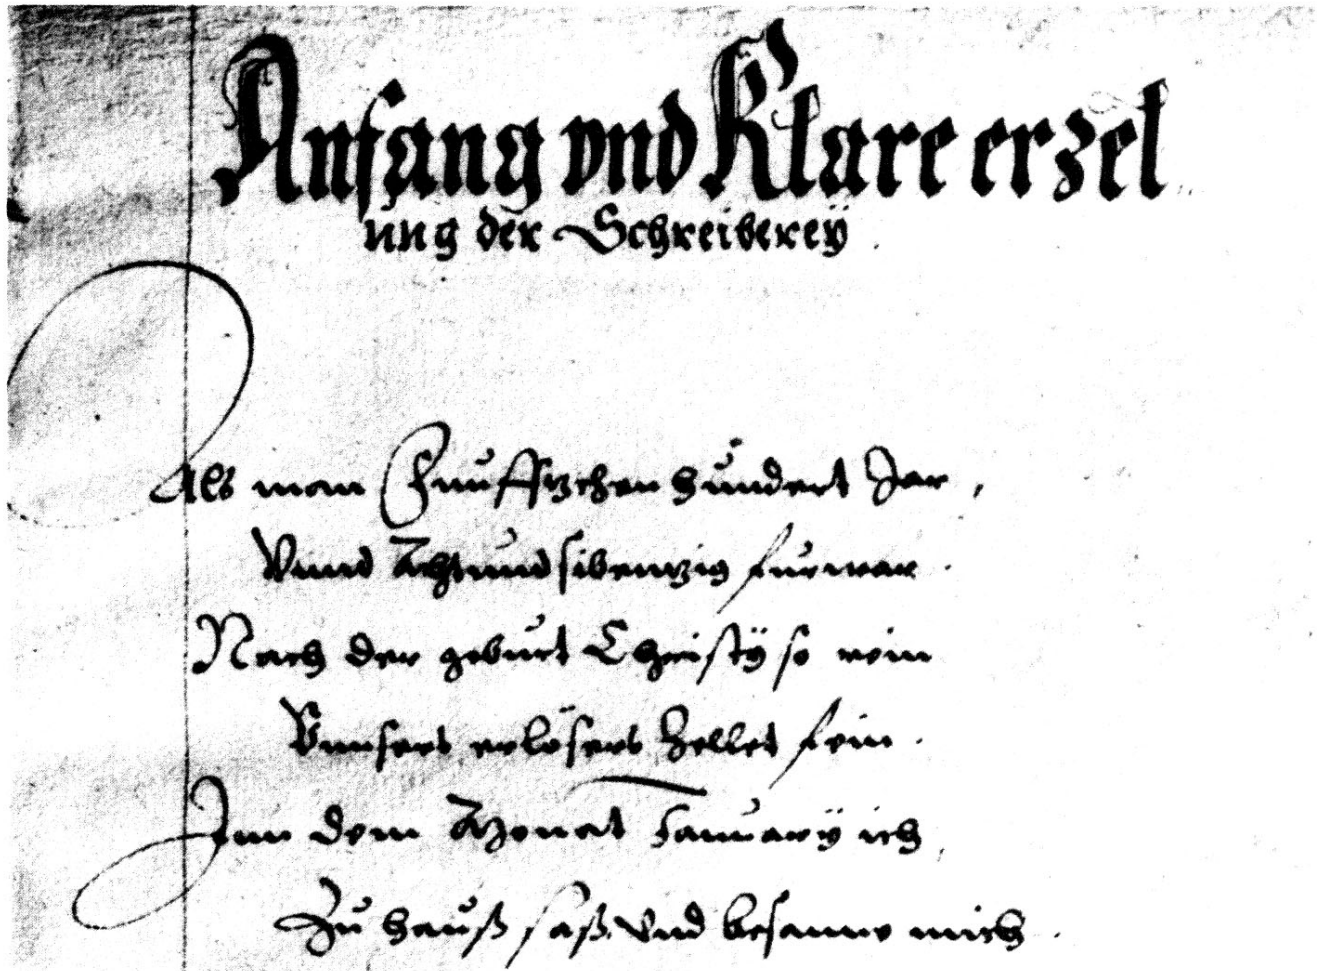 Anfang vnd Klare erzel
ung der Schreiberey
Als man Funffzehenhundert Jar,
Vnnd Achtundsibenzig furwar.
Nach der geburt Christÿ so rein
Vnnsers erlösers Zellet fein.
Jnn dem Monat Januarÿ ich,
Zu hauß saß vnd besanne mich.